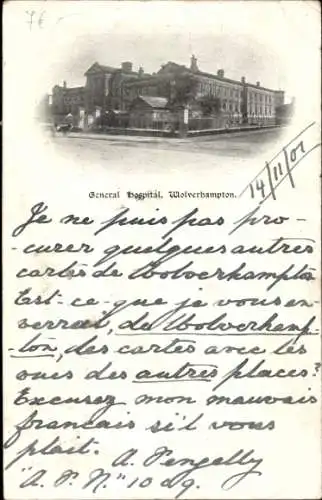 7£
General Hospital, Wolverhampton.
14/11/01
Je ne puis pas pro-
curer quelques autres
cartes de Wolverhampton
Est-ce-que je vous en-
verrai, de Wolverhamp-
ton, des cartes avec les
vues des autres places?
Excusez mon mauvais
français s'il vous
plait. A. Pengelly
"A. P. N." 10 d 9.